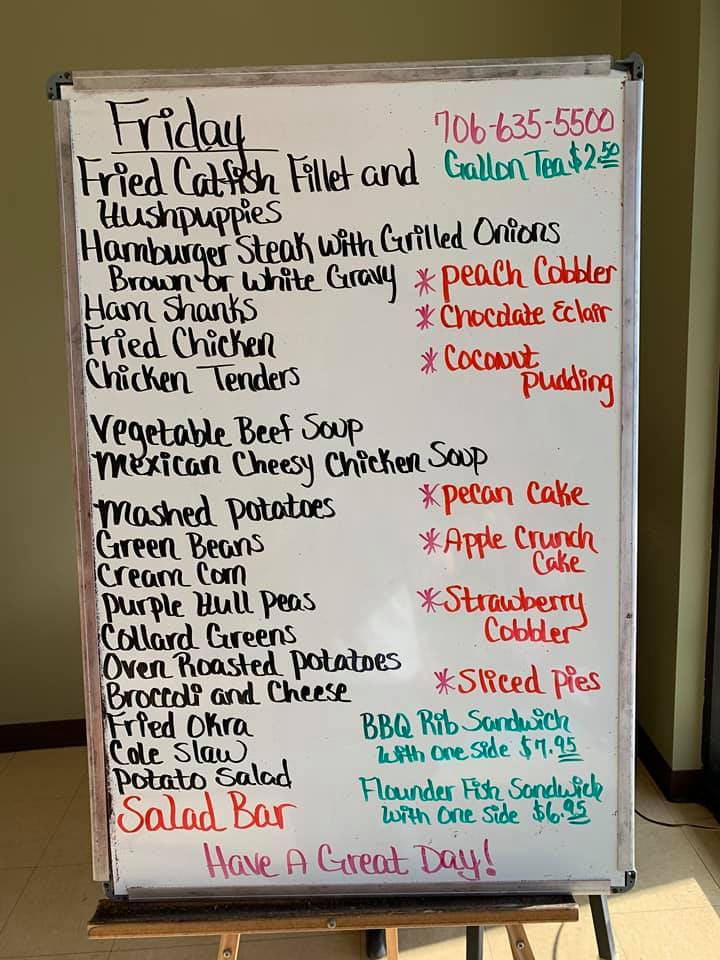 Friday
706-635-5500
Gallon Tea $2.50
Fried Catfish Fillet and
Hushpuppies
Hamburger Steak with Grilled Onions
Brown or White Gravy
Ham Shanks
Fried Chicken
Chicken Tenders
* Peach Cobbler
* Chocolate Eclair
* Coconut
Pudding
Vegetable Beef Soup
Mexican Cheesy Chicken Soup
Mashed Potatoes
Green Beans
Cream Corn
Purple Hull Peas
Collard Greens
Oven Roasted Potatoes
Broccoli and Cheese
Fried Okra
Cole Slaw
Potato Salad
Salad Bar
* Pecan Cake
* Apple Crunch
Cake
* Strawberry
Cobbler
* Sliced Pies
BBQ Rib Sandwich
with One Side $7.95
Flounder Fish Sandwich
with One Side $6.95
Have A Great Day!